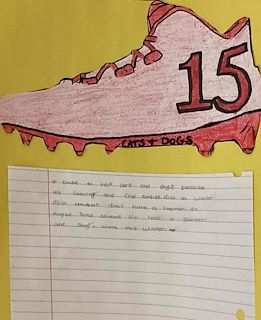 15
CATS + DOGS
I chose to help cats and dogs because
its snowing and cold outside. Also in winter
most animals don't have a shelter so
maybe some animals will have a shelter
and stay warm this winter.